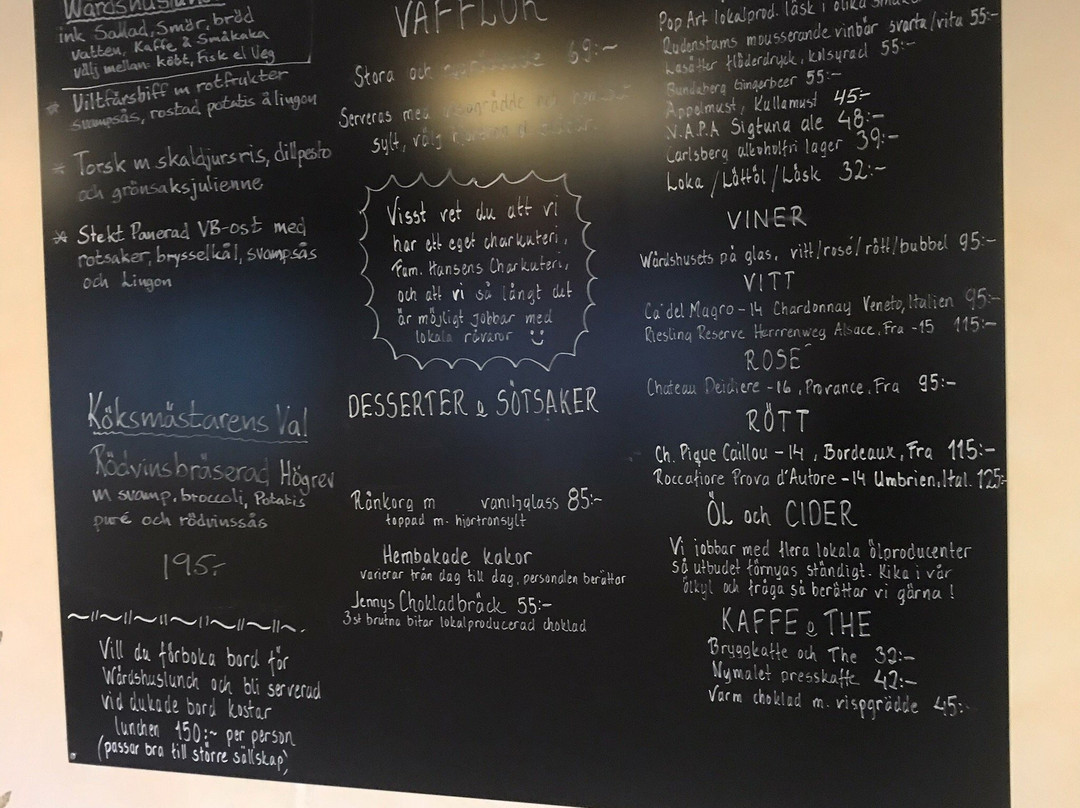 Wårdshuslunch
ink Sallad, Smör, bröd
Vatten, Kaffe & Småkaka
välj mellan: kött, Fisk el Veg
* Viltfärsbiff m rotfrukter
svampsås, rostad potatis å lingon
* Torsk m skaldjursris, dillpesto
och grönsaksjulienne
* Stekt Panerad VB-ost med
rotsaker, brysselkål, svampsås
och Lingon
Köksmästarens Val
Rödvinsbräserad Högrev
m svamp, broccoli, Potatis
puré och rödvinssås
195,-
Vill du förboka bord för
Wårdshuslunch och bli serverad
vid dukade bord kostar
lunchen 150:- per person
(passar bra till större sällskap)
VÅFFLOR
Stora och 69:-
Serveras med
sylt, välj
Visst vet du att vi
har ett eget charkuteri,
Fam. Hansens Charkuteri,
och att vi så långt det
är möjligt jobbar med
lokala råvaror
DESSERTER & SÖTSAKER
Rånkorg m vaniljglass 85:-
toppad m. hjortronsylt
Hembakade kakor
varierar från dag till dag, personalen berättar
Jennys Chokladbräck 55:-
3st brutna bitar lokalproducerad choklad
Pop Art lokalprod. läsk i olika smaker
Rudenstams mousserande vinbär svarta/vita 55:-
Lasätter fläderdryck, kolsyrad 55:-
Bundaberg Gingerbeer 55:-
Äppelmust, Kullamust 45:-
N.A.P.A Sigtuna ale 48:-
Carlsberg alkoholfri lager 39:-
Loka /Lättöl /Läsk 32:-
VINER
Wårdshusets på glas, vitt/rosé/rött/bubbel 95:-
VITT
Ca'del Magro -14 Chardonnay Veneto, Italien 95:-
Riesling Reserve Herrrenweg Alsace, Fra -15 115:-
ROSÉ
Chateau Deidiere -16, Provance, Fra 95:-
RÖTT
Ch. Pique Caillou -14, Bordeaux, Fra 115:-
Roccafiore Prova d'Autore -14 Umbrien, Ital. 125:-
ÖL och CIDER
Vi jobbar med flera lokala ölproducenter
så utbudet förnyas ständigt. Kika i vår
ölkyl och fråga så berättar vi gärna!
KAFFE & THE
Bryggkaffe och The 32:-
Nymalet presskaffe 42:-
Varm choklad m. vispgrädde 45:-